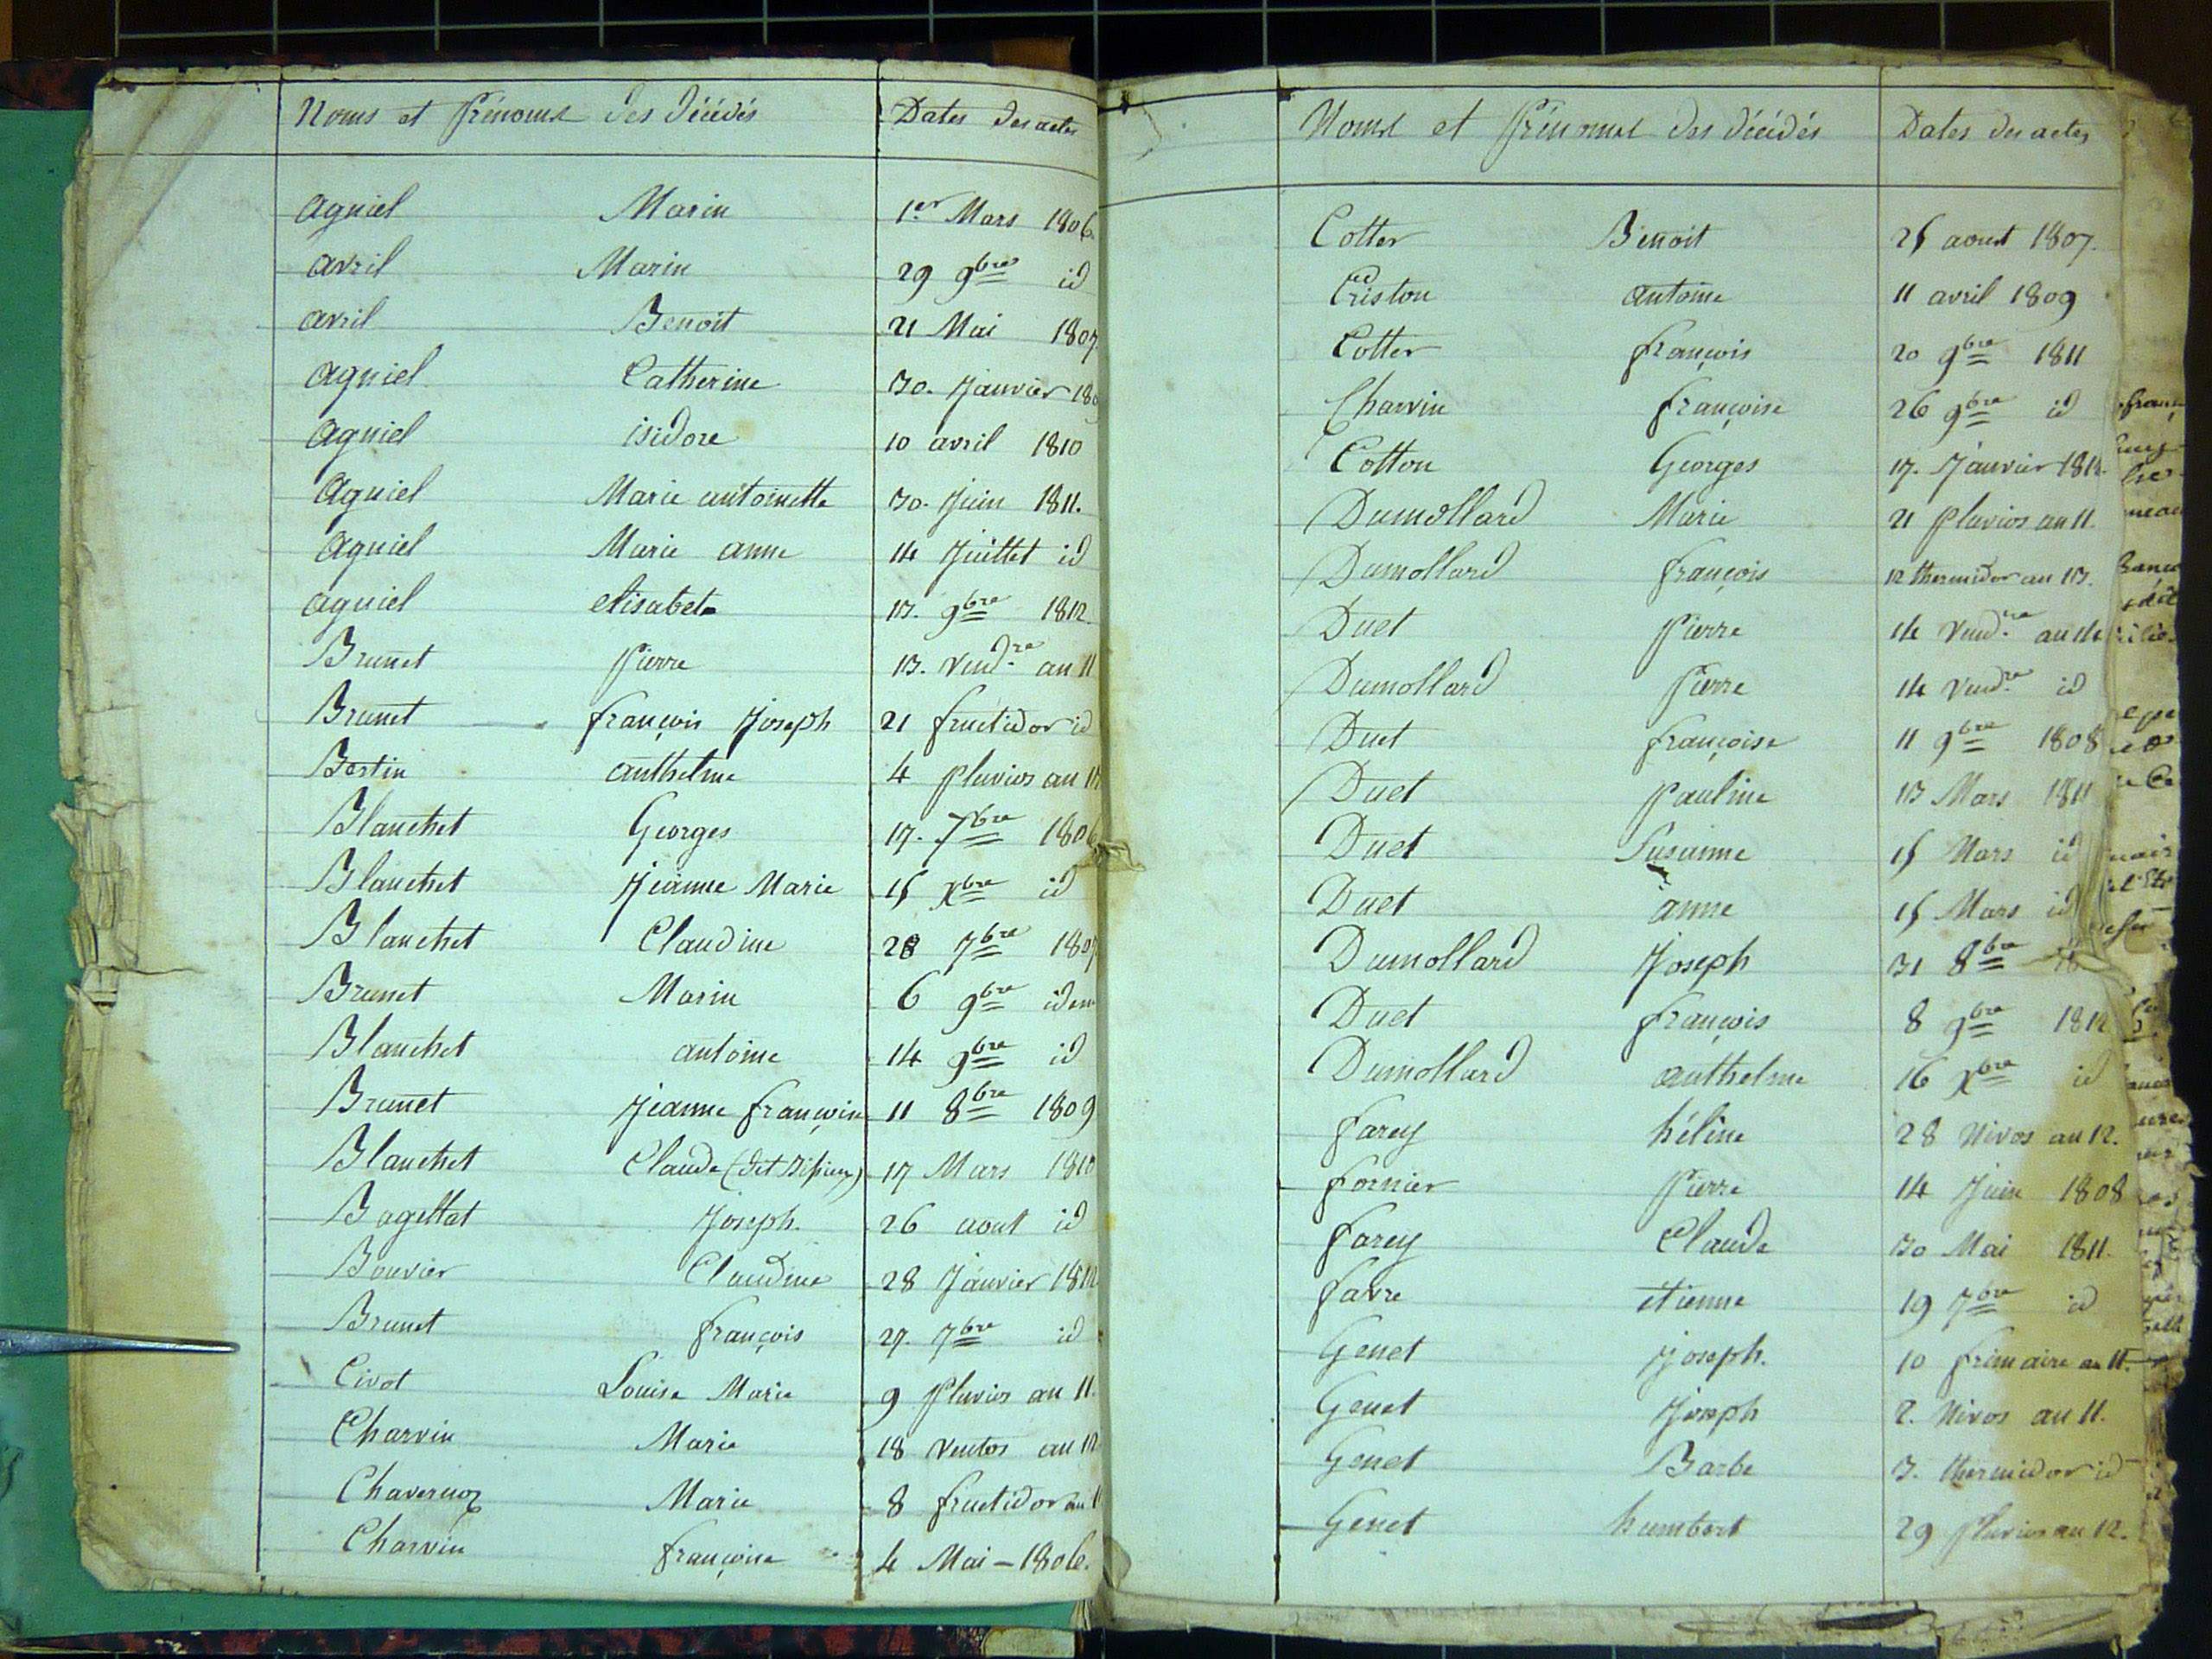 Noms et Prénoms des décédés Dates des actes
agniel Marin 1er Mars 1806
avril Marin 29 9bre id
avril Benoit 21 Mai 1807
agniel Catherine 30. Janvier
agniel isidore 10 avril 1810
agniel Marie antoinette 30. Juin 1811.
agniel Marie anne 14 Juillet id
agniel elisabet 13. 9bre 1812
Brunet Pierre 13. Vendre an 11
Brunet françois Joseph 21 fructidor id
Bertin anthelme 4 pluvios an
Blanchet Georges 17. 7bre 1806
Blanchet Jeanne Marie 15 Xbre id
Blanchet Claudine 28 7bre 1807
Brunet Marin 6 9bre idem
Blanchet antoine 14 9bre id
Brunet Jeanne françoise 11 8bre 1809
Blanchet Claude (dit 17 Mars 1810
Bagettat Joseph. 26 aout id
Bouvier Claudine 28 Janvier 1812
Brunet françois 27. 7bre id
Civot Louise Marie 9 Pluvios an 11.
Charvin Marie 18 Ventos an 12
Chavernoz Marie 8 fructidor an
Charvin françoise 4 Mai – 1806.
Noms et Prénoms des décédés Dates des actes
Cotter Benoit 25 aoust 1807.
Criston antoine 11 avril 1809
Cotter françois 20 9bre 1811
Charvin françoise 26 9bre id
Cotton Georges 17. Janvier 1812.
Dumollard Marie 21 pluvios an 11.
Dumollard françois 12 thermidor an 13.
Duet Pierre 14 Vendre an 14
Dumollard Pierre 14 Vendre id
Duet françoise 11 9bre 1808
Duet Pauline 13 Mars 1811
Duet Susanne 15 Mars id
Duet anne 15 Mars id
Dumollard Joseph 31 8bre
Duet françois 8 9bre 1812
Dumollard anthelme 16 Xbre id
farey hélène 28 Nivos an 12.
fornier Pierre 14 Juin 1808
farey Claude 30 Mai 1811.
favre etienne 19 7bre id
Genet Joseph. 10 frimaire an 11.
Genet Joseph 2. Nivos an 11.
Genet Barbe 3. thermidor id
Genet humbert 29 pluvios an 12.